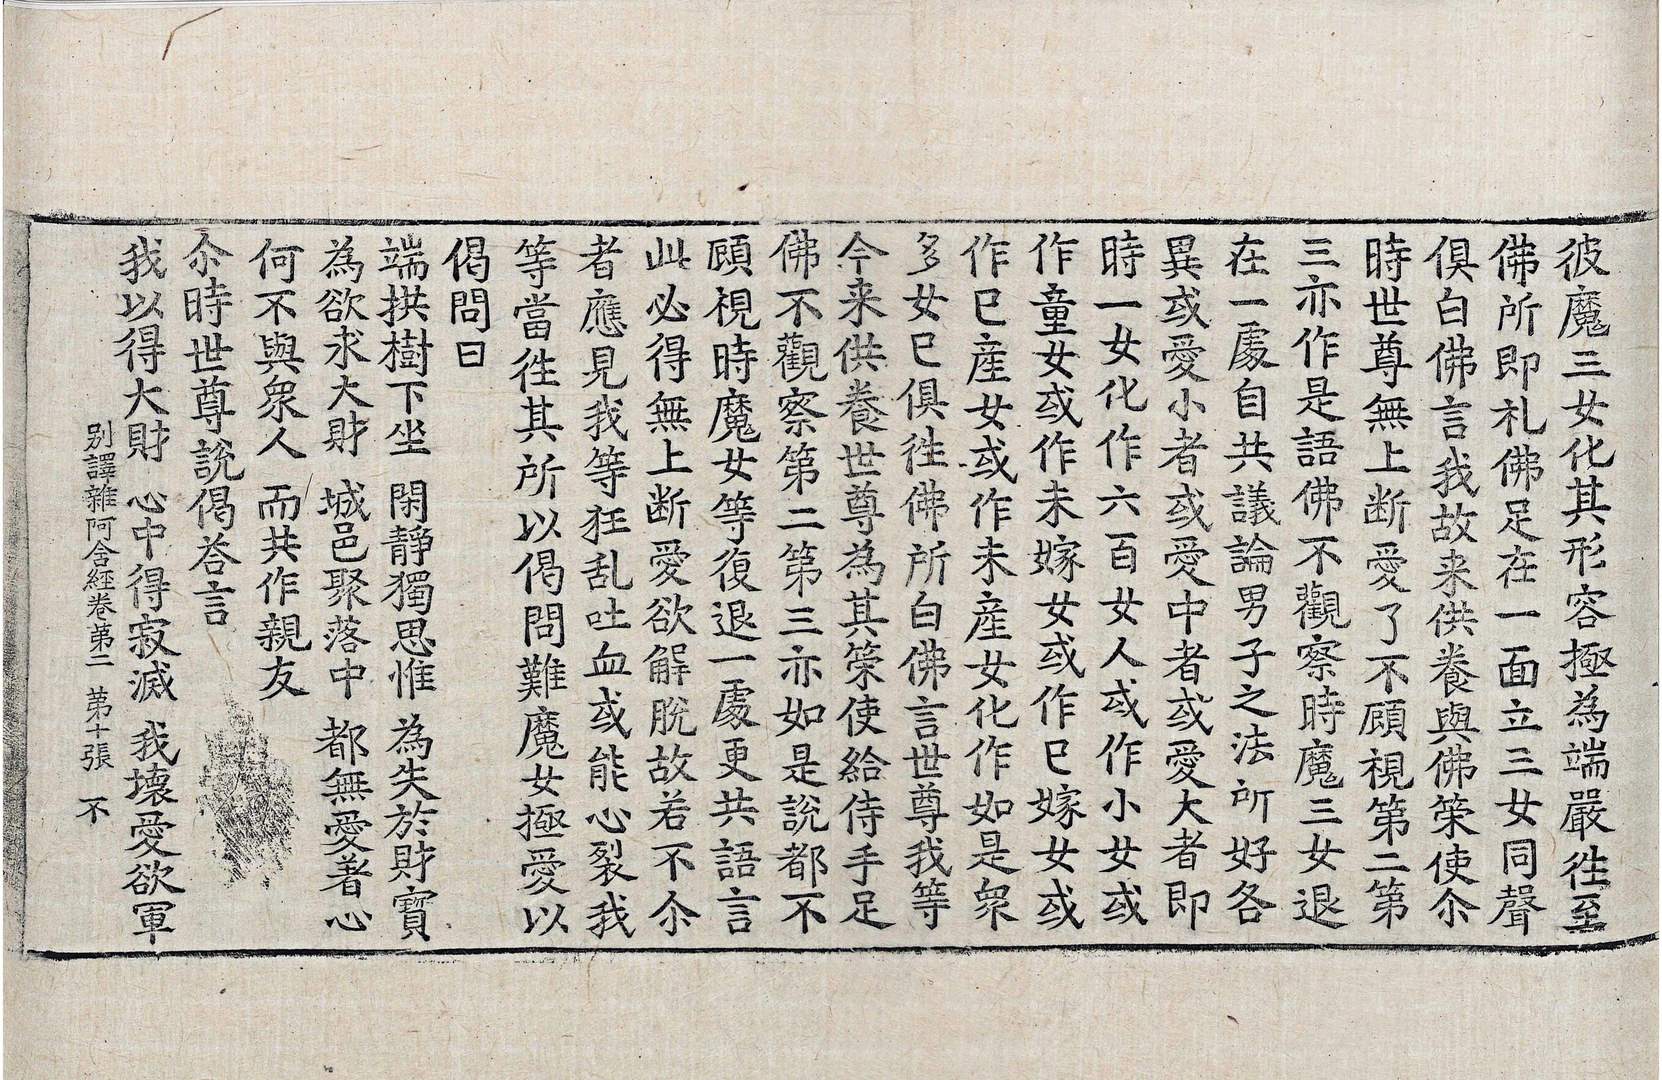 彼魔三女化其形容極為端嚴徃至
佛所即礼佛足在一面立三女同聲
俱白佛言我故来供養與佛䇿使尒
時世尊無上断愛了不顧視第二第
三亦作是語佛不觀察時魔三女退
在一處自共議論男子之法所好各
異或愛小者或愛中者或愛大者即
時一女化作六百女人或作小女或
作童女或作未嫁女或作已嫁女或
作已産女或作未産女化作如是衆
多女已俱徃佛所白佛言世尊我等
今来供養世尊為其䇿使給侍手足
佛不觀察第二第三亦如是說都不
顧視時魔女等復退一處更共語言
此必得無上断愛欲解脫故若不尒
者應見我等狂乱吐血或能心裂我
等當徃其所以偈問難魔女極愛以
偈問曰
端拱樹下坐　閑靜獨思惟　為失於財寳
為欲求大財　城邑聚落中　都無愛著心
何不與衆人　而共作親友
尒時世尊說偈荅言
我以得大財　心中得寂滅　我壊愛欲軍
别譯雜阿含經卷第二　第十張　不